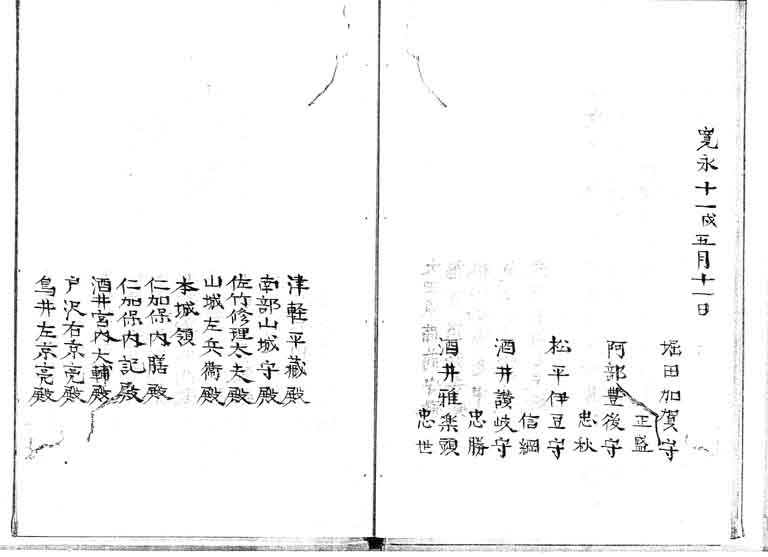 寛永十一戌五月十一日
堀田加賀守
正盛
阿部豊後守
忠秋
松平伊豆守
信綱
酒井讃岐守
忠勝
酒井雅楽頭
忠世
津軽平蔵殿
南部山城守殿
佐竹修理太夫殿
山城左兵衛殿
本城領
仁加保内膳殿
仁加保内記殿
酒井宮内大輔殿
戸沢右京亮殿
鳥井左京亮殿